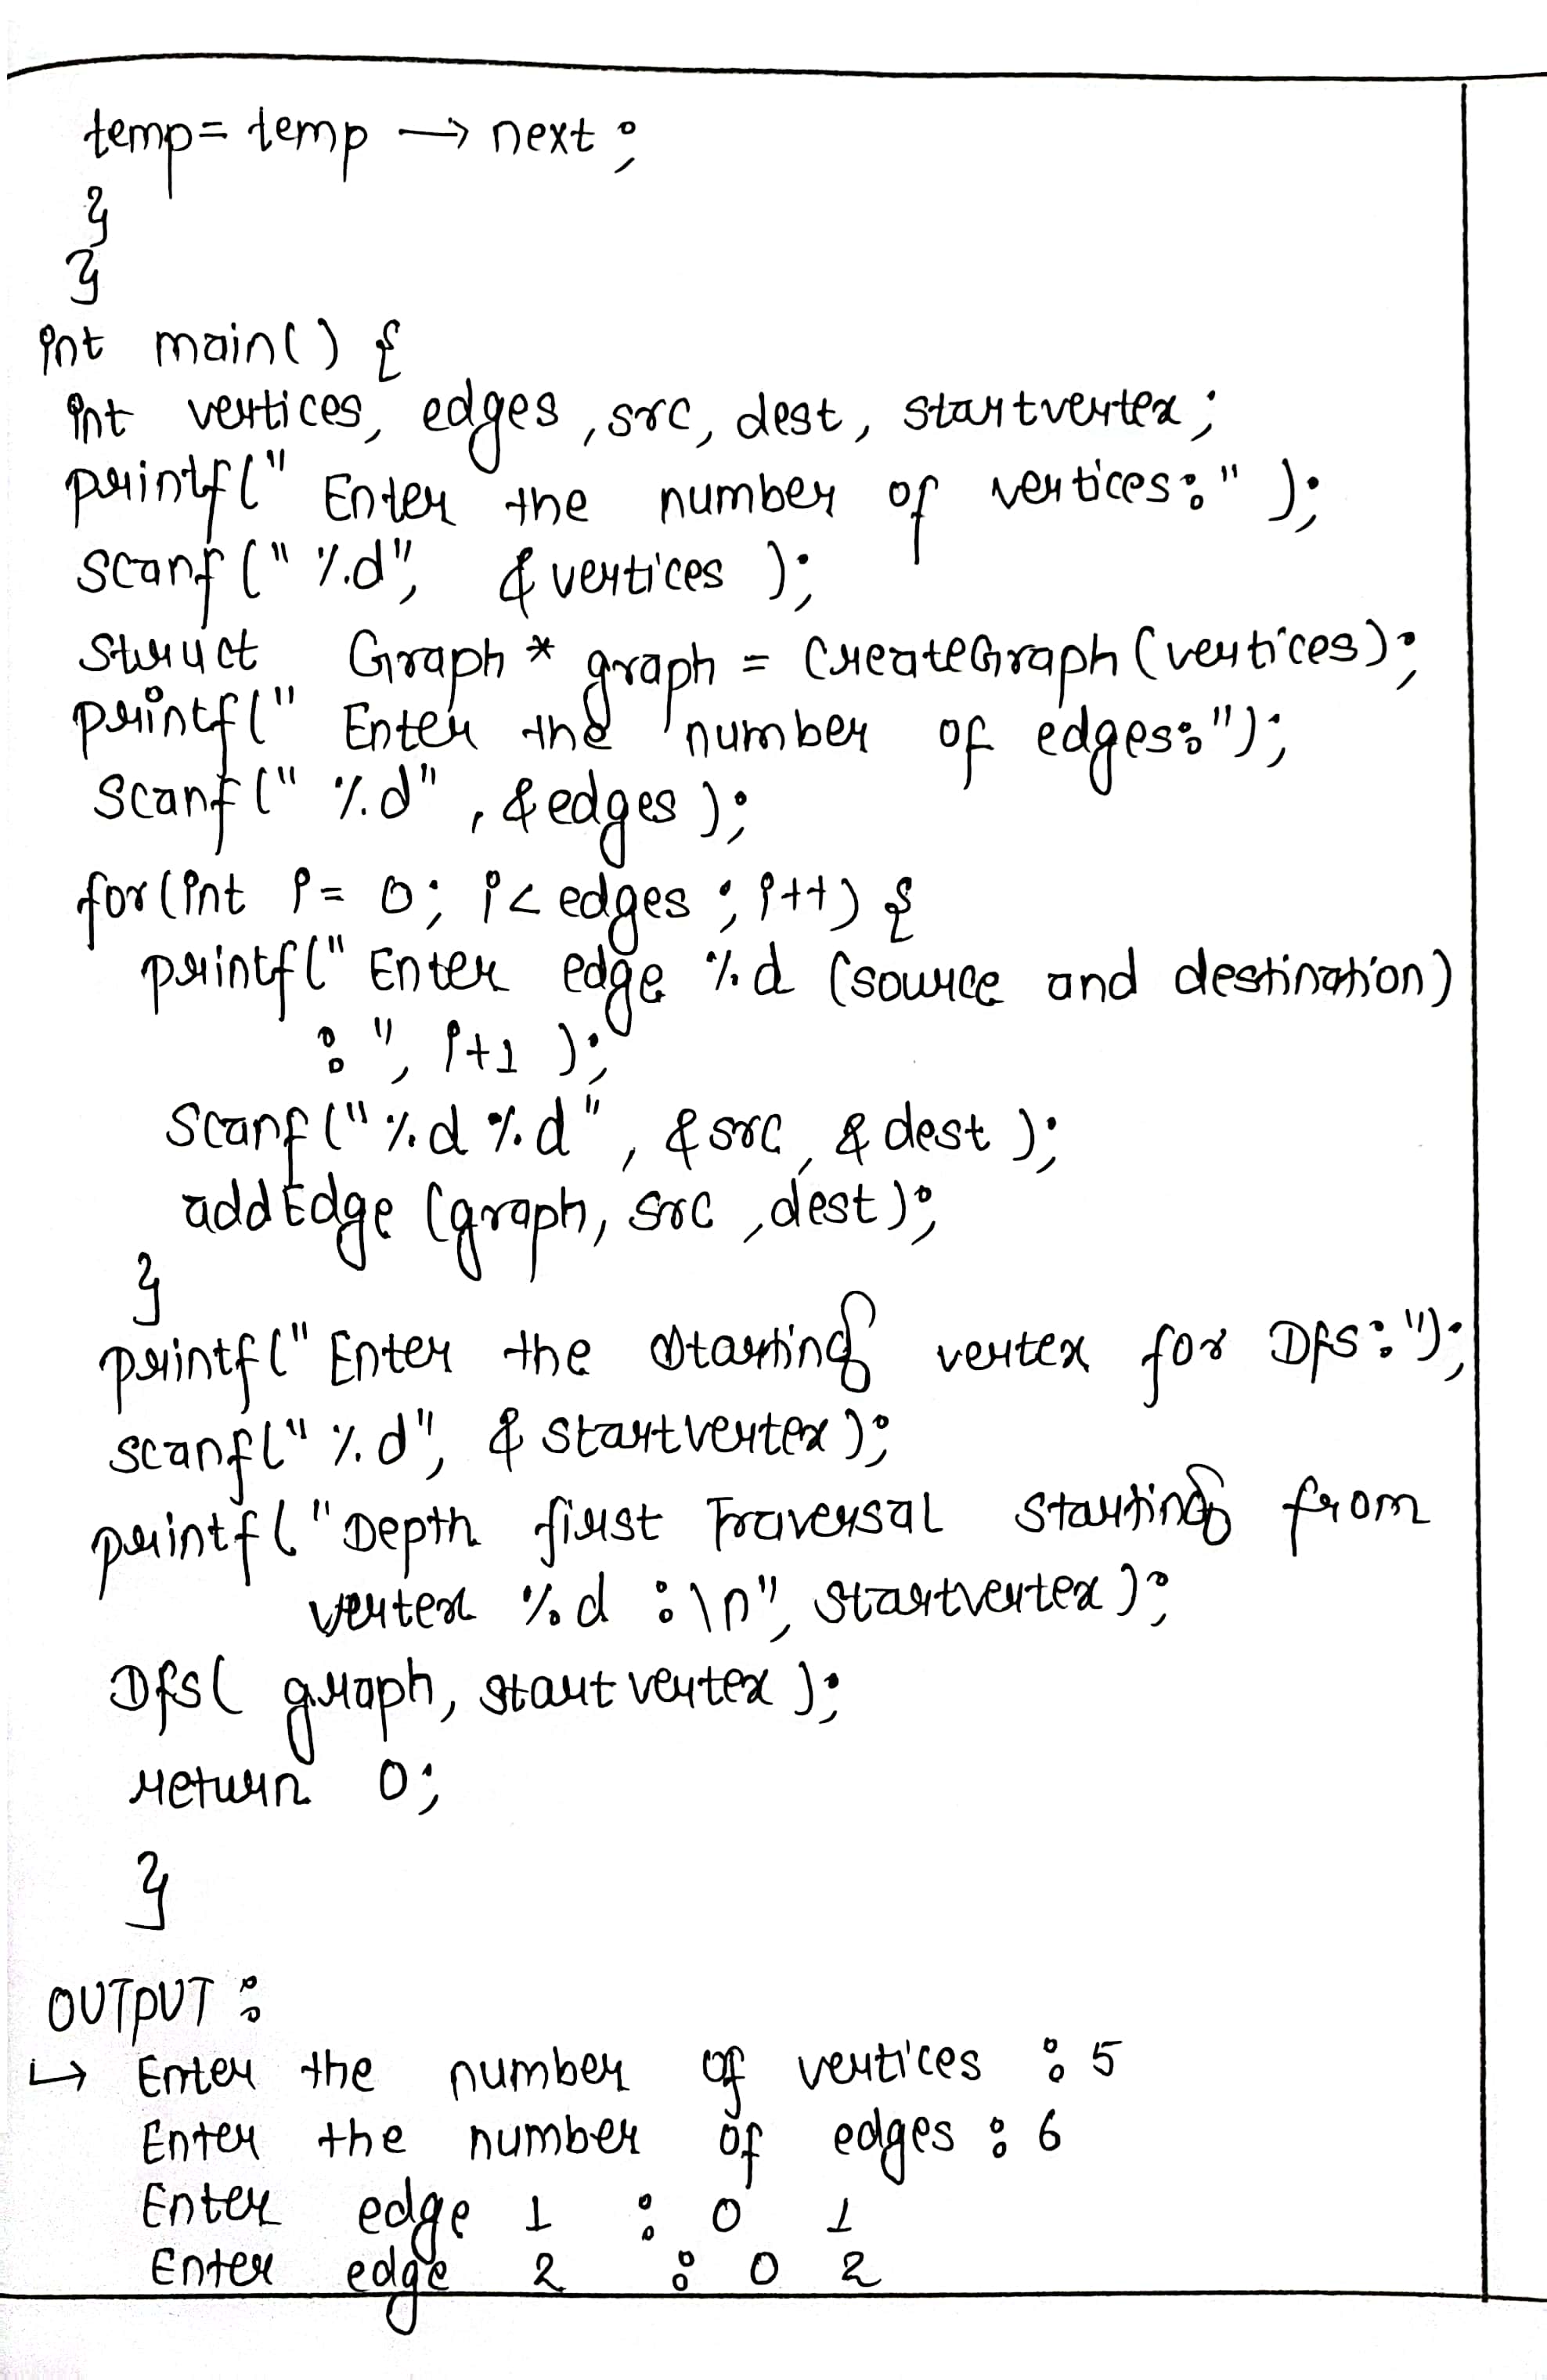 temp = temp → next ;
}
}
int main() {
int vertices, edges, src, dest, startvertex ;
printf(" Enter the number of vertices:" );
scanf (" %d", & vertices );
struct Graph * graph = CreateGraph (vertices);
printf(" Enter the number of edges:");
scanf (" %d" , & edges );
for (int i = 0; i < edges ; i++) {
printf(" Enter edge %d (source and destination)
: ", i+1 );
scanf ("%d %d" , & src, & dest );
addEdge (graph, src , dest);
}
printf(" Enter the starting vertex for Dfs: ");
scanf(" %d", & startvertex );
printf( "Depth first Traversal starting from
vertex %d : \n", startvertex );
Dfs( graph, startvertex );
return 0;
}
OUTPUT :
↳ Enter the number of vertices : 5
Enter the number of edges : 6
Enter edge 1 : 0 1
Enter edge 2 : 0 2